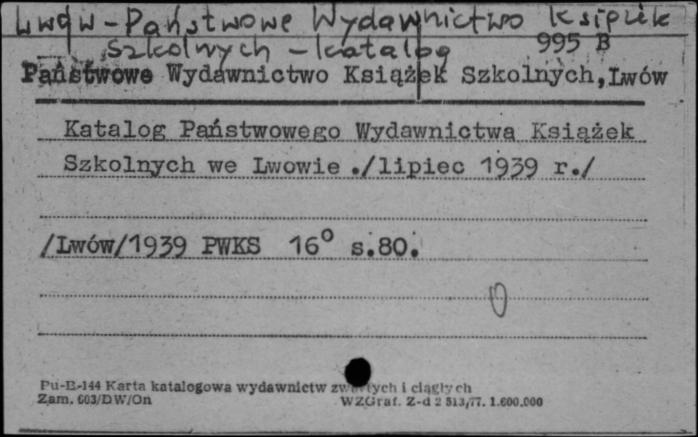 Lwów - Państwowe Wydawnictwo Książek
szkolnych - katalog 995 B
Państwowe Wydawnictwo Książek Szkolnych, Lwów
Katalog Państwowego Wydawnictwa Książek
Szkolnych we Lwowie ./lipiec 1939 r./
/Lwów/1939 PWKS 16° s.80.
Pu-B-144 Karta katalogowa wydawnictw zwartych i ciągłych
Zam. 603/DW/On WZGraf. Z-d 2 513,77. 1.600.000